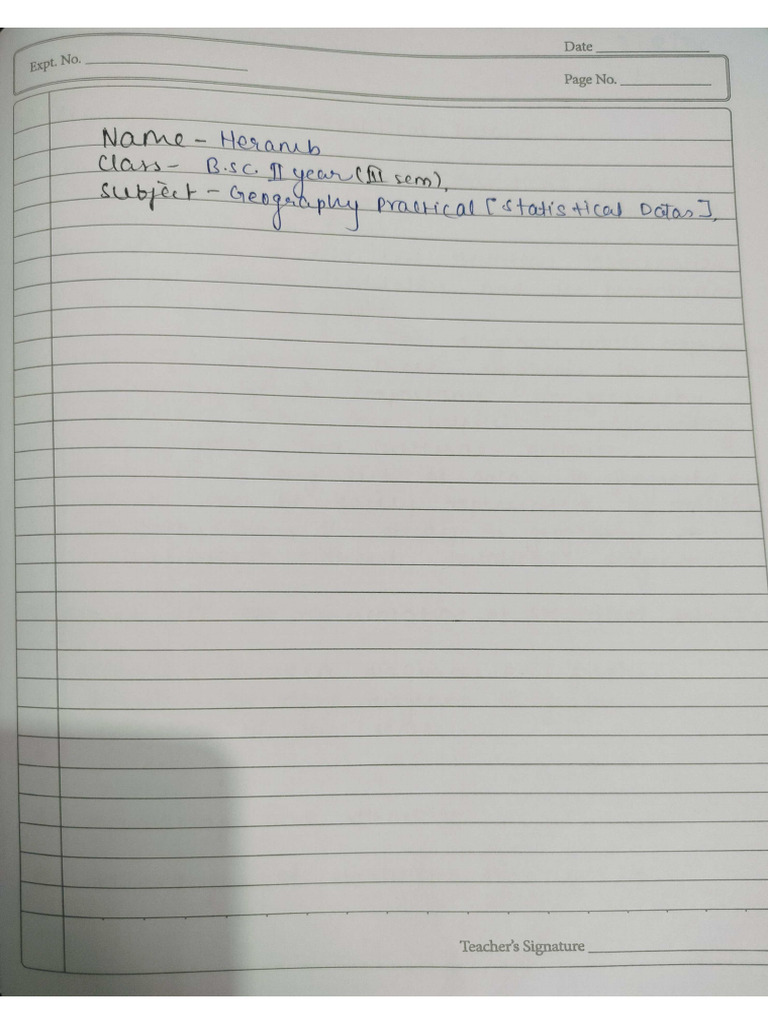 Date
Expt. No.
Page No.
Name - Heramb
Class - B.sc. II year (III sem),
Subject - Geography Practical [Statistical Datas],
Teacher's Signature